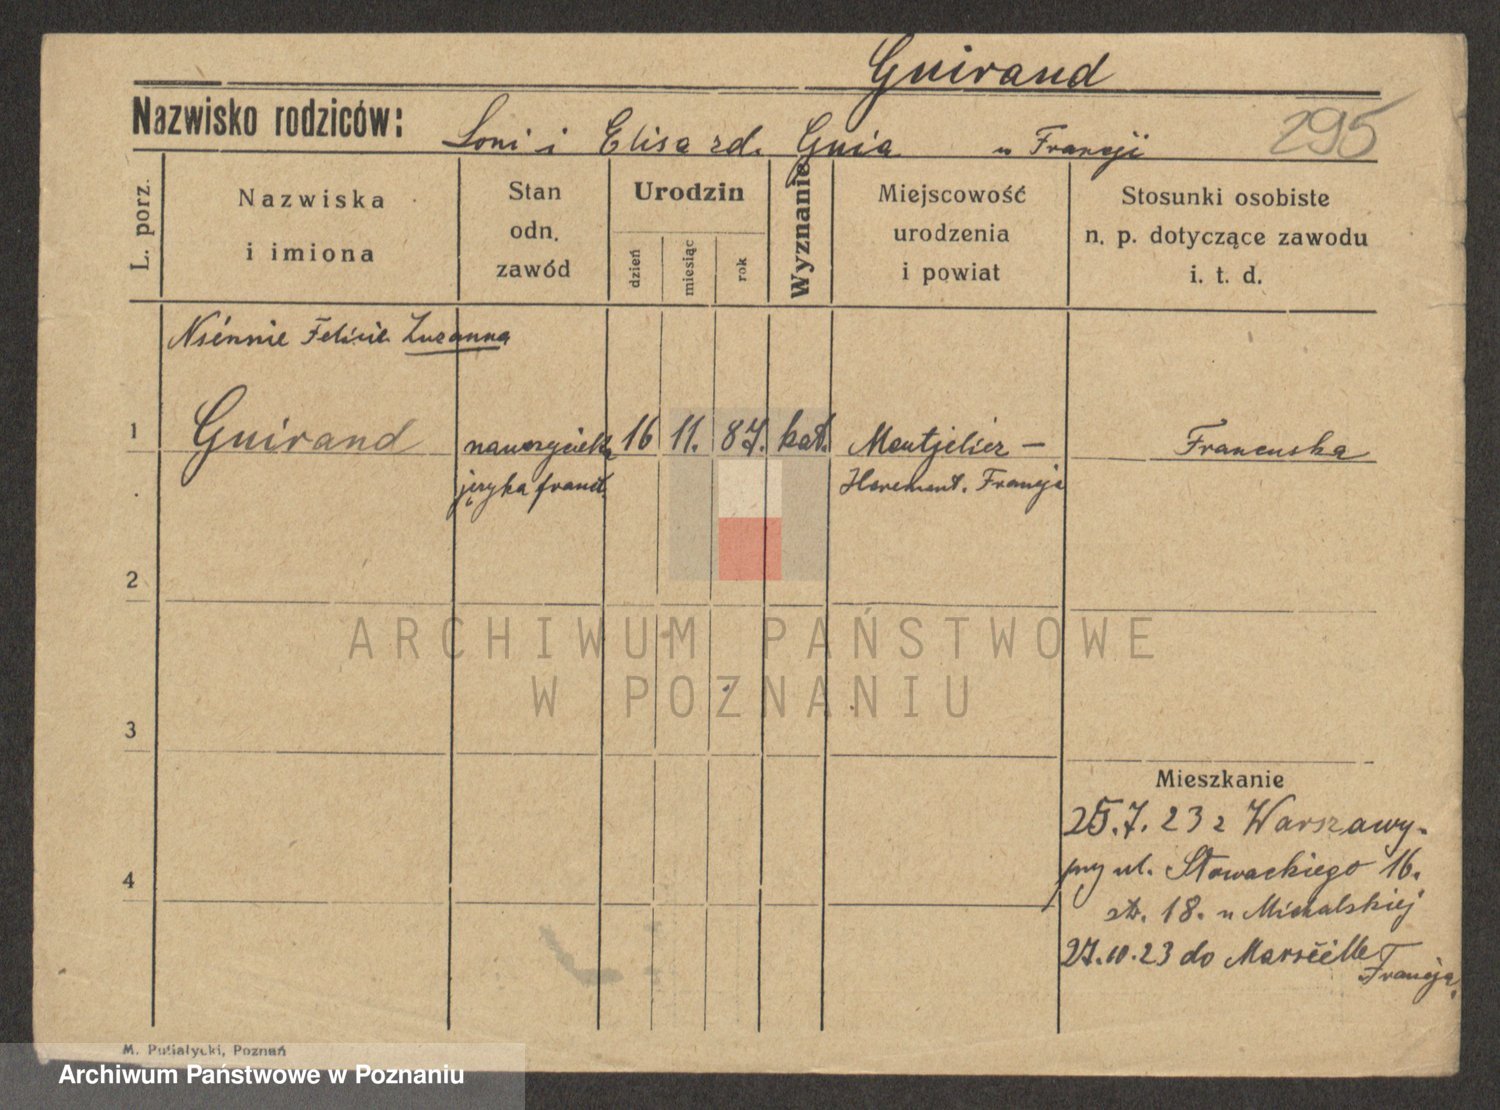 Guirand
Nazwisko rodziców:
Loni i Elisa zd. Guia w Francji
295
L. porz.
Nazwiska
i imiona
Stan
odn.
zawód
Urodzin
dzień
miesiąc
rok
Wyznanie
Miejscowość
urodzenia
i powiat
Stosunki osobiste
n. p. dotyczące zawodu
i. t. d.
Felicie Zuzanna
1 Guirand nauczycielka 16 11. 87. kat. Montpelier — Francuska
języka franc. Francja
2
ARCHIWUM PAŃSTWOWE
W POZNANIU
3
Mieszkanie
25.7.23 z Warszawy.
przy ul. Słowackiego 16.
4
18. u Michalskiej
27.10.23 do Marseille
Francja.
M. Putiatycki, Poznań
Archiwum Państwowe w Poznaniu